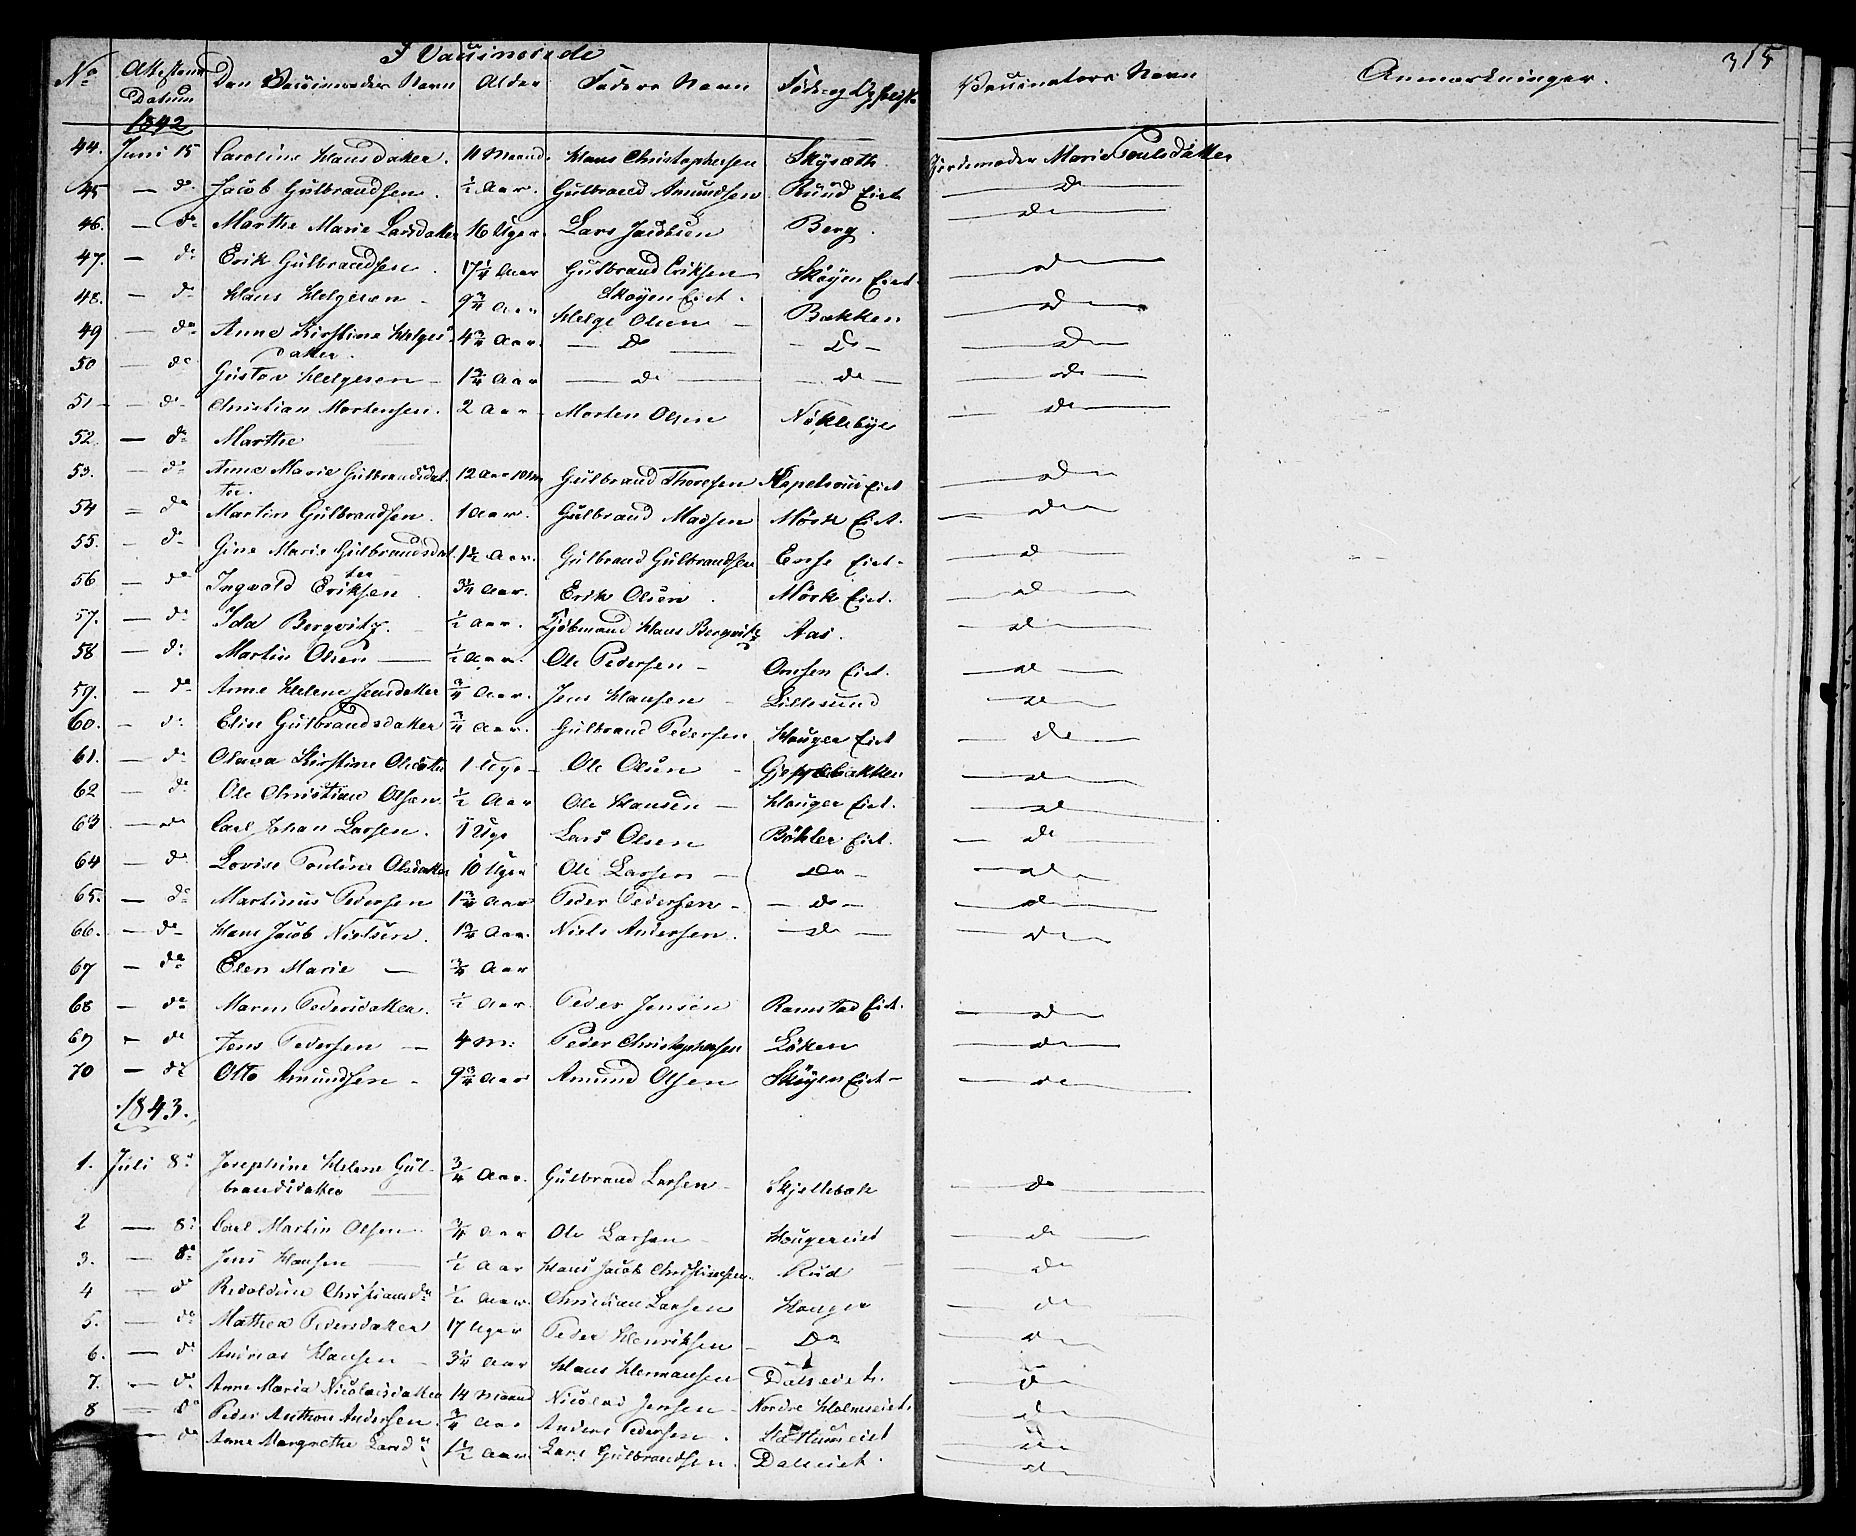 315
I Vaccinerede
No Attestens Datum Den Vaccineredes Navn Alder Faders Navn Føde og Opholdst. Vaccinatørs Navn Anmærkninger.
1842
44. Juni 15 Caroline Hansdatter. 11 Maaned Hans Christophersen Skysæth Jordemoder Marie Poulsdatter
45 — do Jacob Gulbrandsen. 1/2 Aar. Gulbrand Amundsen Ruud Eiet — do —
46. — do Marthe Marie Larsdatter 16 Uger Lars Jacobsen Berg. — do —
47. — do Erik Gulbrandsen. 17 1/4 Aar Gulbrand Eriksen Skøyen Eiet — do —
48. — do Hans Helgesen — 9 3/4 Aar Skøyen Eiet. Helge Olsen — Bakken — do —
49 — do Anne Kirstine Helges- 4 3/4 Aar. — Do — — Do — — do —
datter.
50 — do Gustav Helgesen — 1 3/4 Aar — do — — do — — do —
51 — do Christian Mortensen. 2 Aar Morten Olsen Nøklebye — do —
52. — do Marthe
53. — do Anne Marie Gulbrandsdat- 12 Aar 10 M Gulbrand Thoresen Eiet — do —
ter.
54 — do Martin Gulbrandsen. 1 Aar. Gulbrand Madsen Mørk Eiet. — do —
55. — do Gine Marie Gulbrandsdat- 1 1/2 Aar. Gulbrand Gulbrandsen Eiet. — do —
ter
56 — do Ingvold Eriksen. 3/4 Aar. Erik Olsen. Mørk Eiet. — do —
57. — do Ida Bergvitz. — 1/2 Aar. Kjøbmand Hans Bergvitz Aas. — do —
58 — do Martin Olsen — 1/2 Aar. Ole Pedersen — Eiet. — do —
59. — do Anne Helene Jensdatter 3/4 Aar. Jens Hansen — Lillesund — do —
60. — do Elise Gulbrandsdatter 3/4 Aar. Gulbrand Pedersen Houger Eiet — do —
61. — do Olava Kirstine Olsdatter 1 Uge — Ole Olsen — — do —
62 — do Ole Christian Olsen. 1/2 Aar Ole Hansen — Houger Eiet. — do —
63 — do Carl Johan Larsen. 1 Uge Lars Olsen Bøhler Eiet. — do —
64 — do Lovise Pouline Olsdatter 10 Uger Ole Larsen — Do — — do —
65. — do Martinus Pedersen 1 3/4 Aar Peder Pedersen — — do — — do —
66. — do Hans Jacob Nielsen. 1 3/4 Aar. Niels Andersen. — do — — do —
67 — do Elen Marie — 3/4 Aar
68 — do Maren Pedersdatter. 1/2 Aar. Peder Jensen Ramstad Eiet. — do —
69 — do Jens Pedersen — 4 M: Peder Christophersen Løken — do —
70 — do Otto Amundsen — 9 3/4 Aar Amund Olsen Skøyen Eiet — — do —
1843.
1. Juli 8de Josephine Helene Gul- 3/4 Aar. Gulbrand Larsen — Skjellebæk — do —
brandsdatter —
2 — 8de Carl Martin Olsen — 3/4 Aar Ole Larsen — Hougereiet — do —
3. — 8de Jens Hansen — 1/2 Aar Hans Jacob Christiansen. Rud — do —
4 — do Christiansdr 1/2 Aar. Christian Larsen Houger — do —
5. — do Mathea Pedersdatter 17 Uger Peder Henriksen — Do — do —
6. — do Andreas Hansen — 3/4 Aar Hans Hermansen Dalseiet. — do —
7. — do Anne Maria Nicolaisdatter 14 Maaned Nicolai Jensen — Nordre Holmseiet. — do —
8 — do Peder Anthon Andersen. 3/4 Aar Anders Pedersen. — do —
— do Anne Margrethe Larsdr 1 1/2 Aar. Lars Gulbrandsen. Dalseiet. — do —